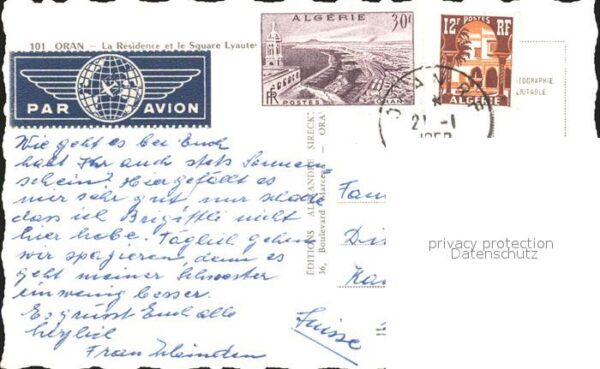 101 ORAN – La Résidence et le Square Lyautey
PAR AVION
ALGÉRIE
30F
RF
POSTES
ORAN
12F POSTES RF
ALGÉRIE
21 -1
OGRAPHIE
ÉRITABLE
Wie geht es bei Euch
habt Ihr auch stets Sonnen
schein? Hier gefällt es
mir sehr gut nur schade
dass ich Brigittli nicht
hier habe. Täglich gehen
wir spazieren, denn es
geht meiner Schwester
ein wenig besser.
Es grüsst Euch alle
herzlich
Frau
ÉDITIONS ALEXANDRE SIRECKY
36, Boulevard Marceau - ORAN
Fam
Dir
Kan
Suisse
privacy protection
Datenschutz